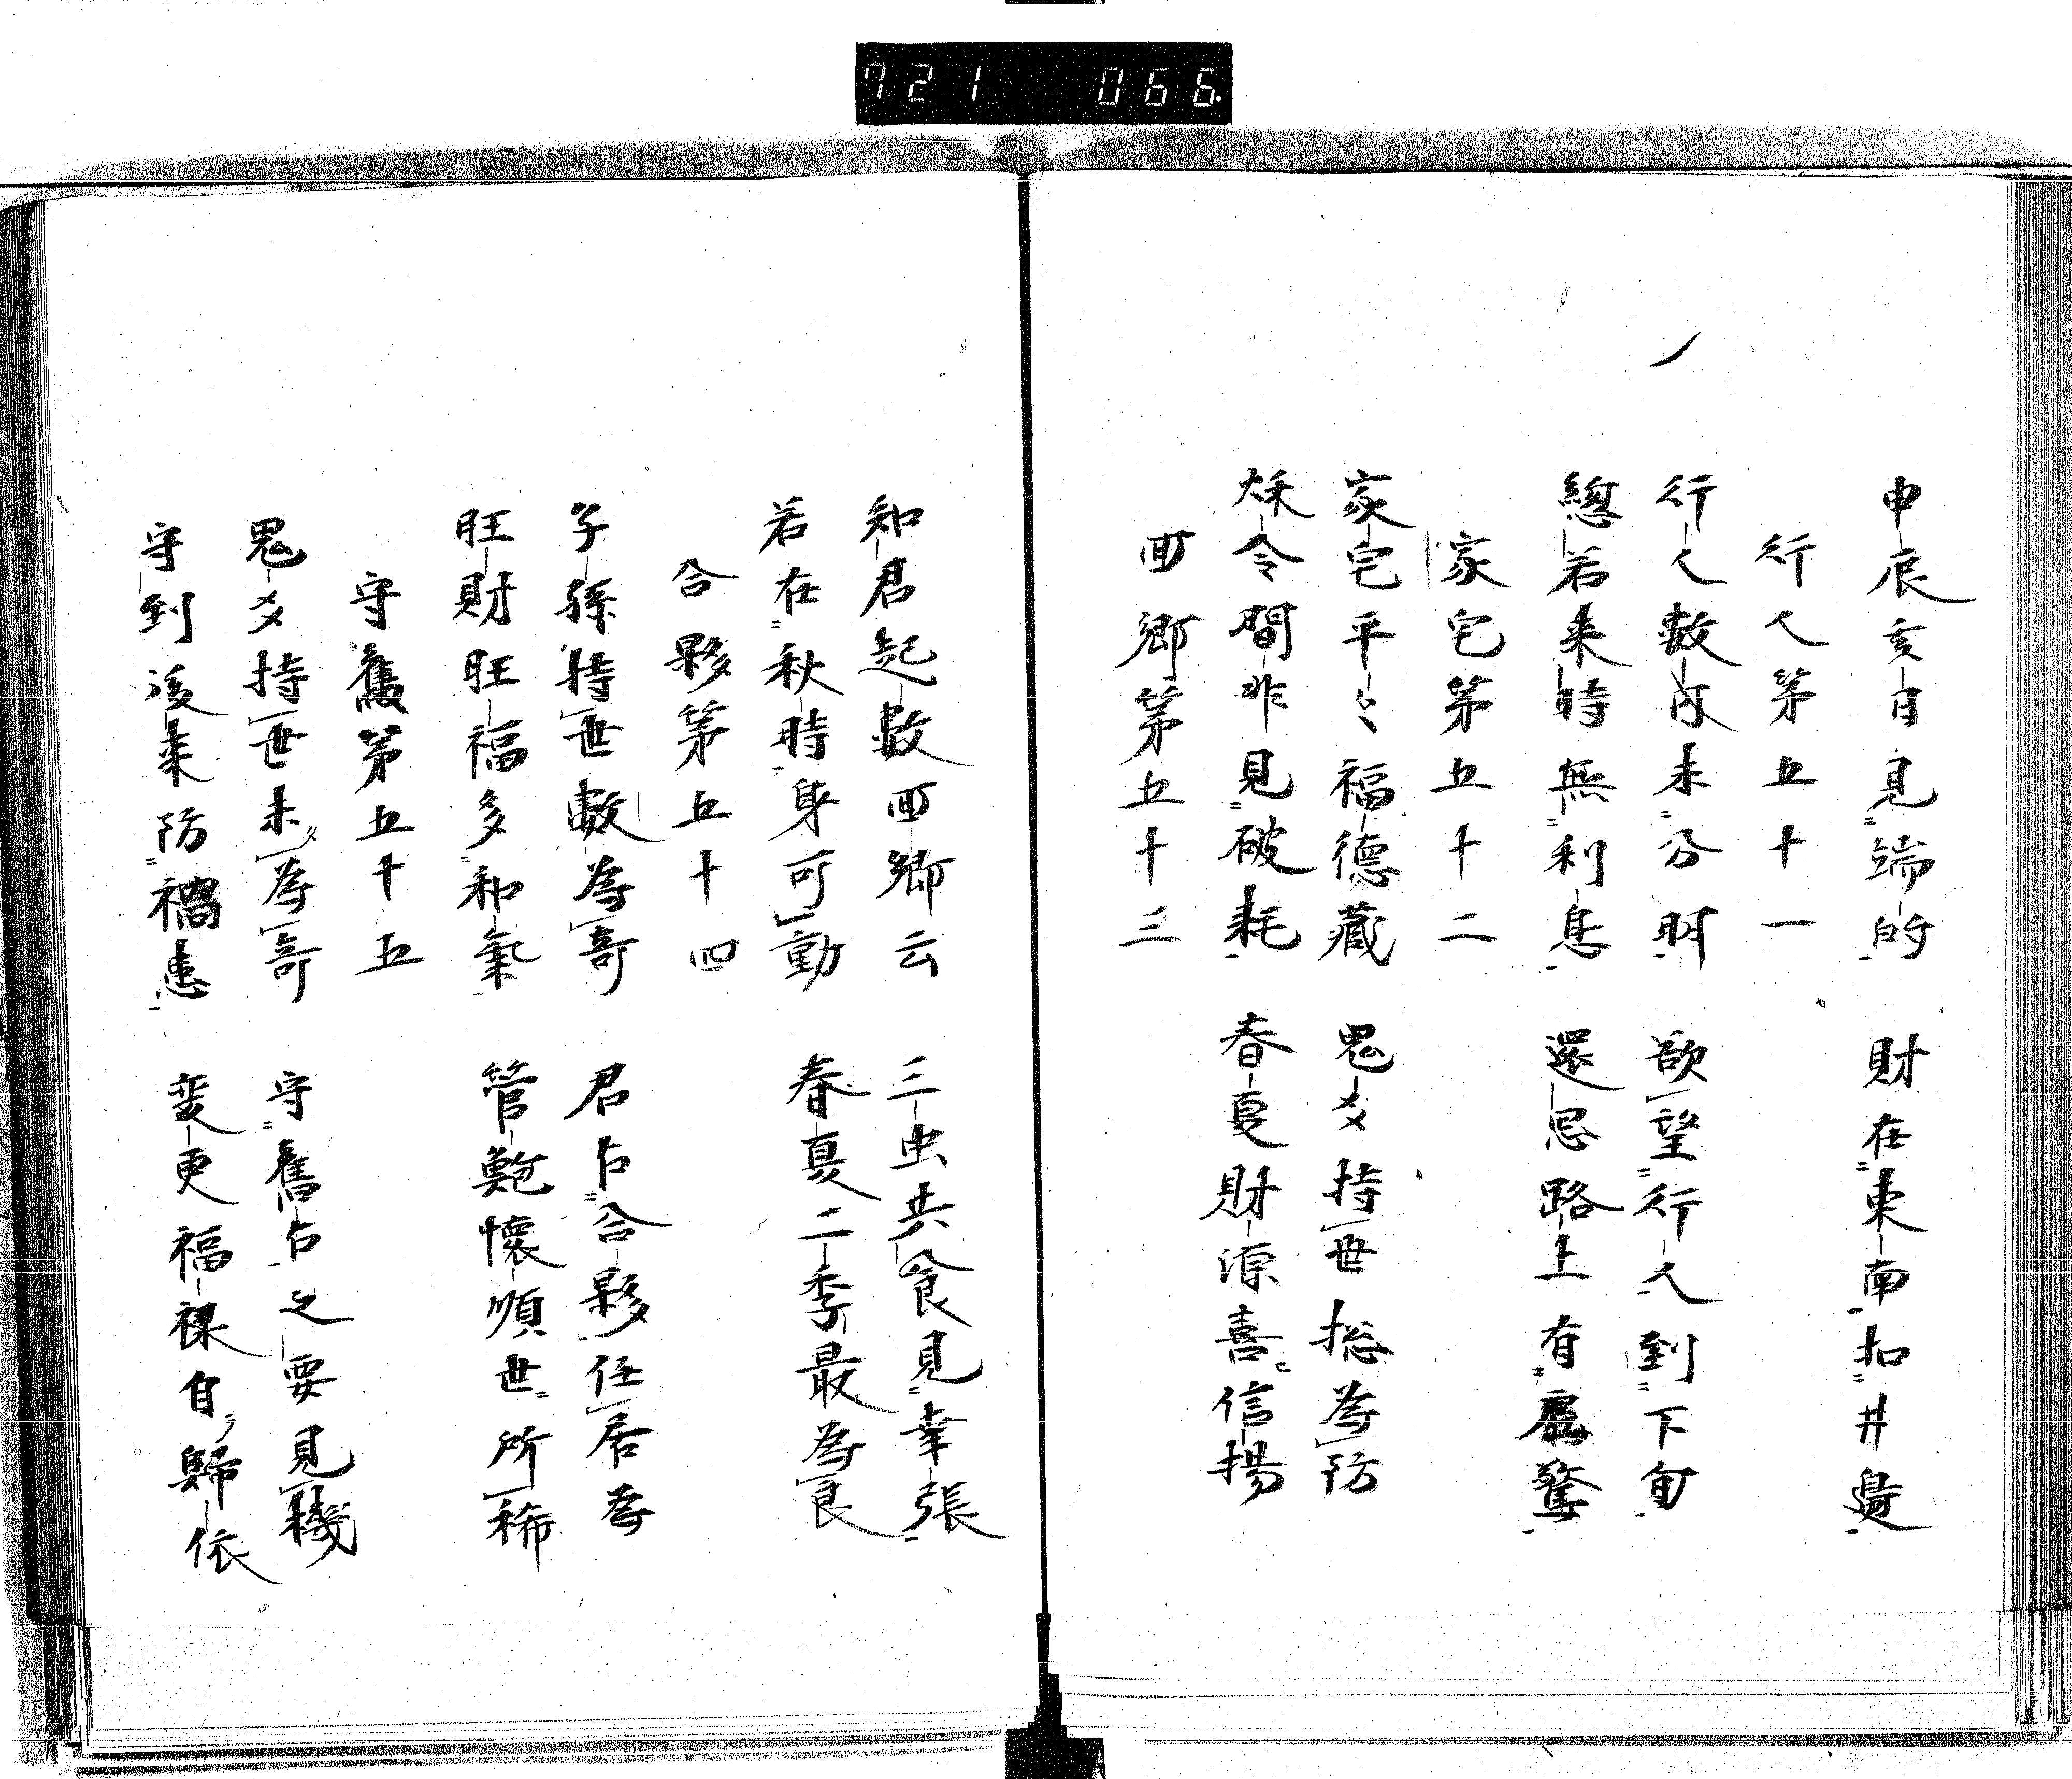 721 066
申辰亥日見端的 財在東南扣井邊
行人第五十一
行人數内未分明 欲望行人到下旬
總若来時無利息 還忌路上有虚驚
家宅第五十二
家宅平〻福德藏 鬼爻持世総為防
秌令間非見破耗 春夏財源喜信揚
囬鄉第五十三
知君起數囬鄉云 三虫共食見幸張
若在秋時身可動 春夏二季最為良
合夥第五十四
子孫持世數為哥 君占合夥任居為
旺財旺福多和氣 管鮑懷順世所稀
守舊第五十五
鬼爻持世未為哥 守舊占之要見機
守到後来防禍患 変更福禄自歸依